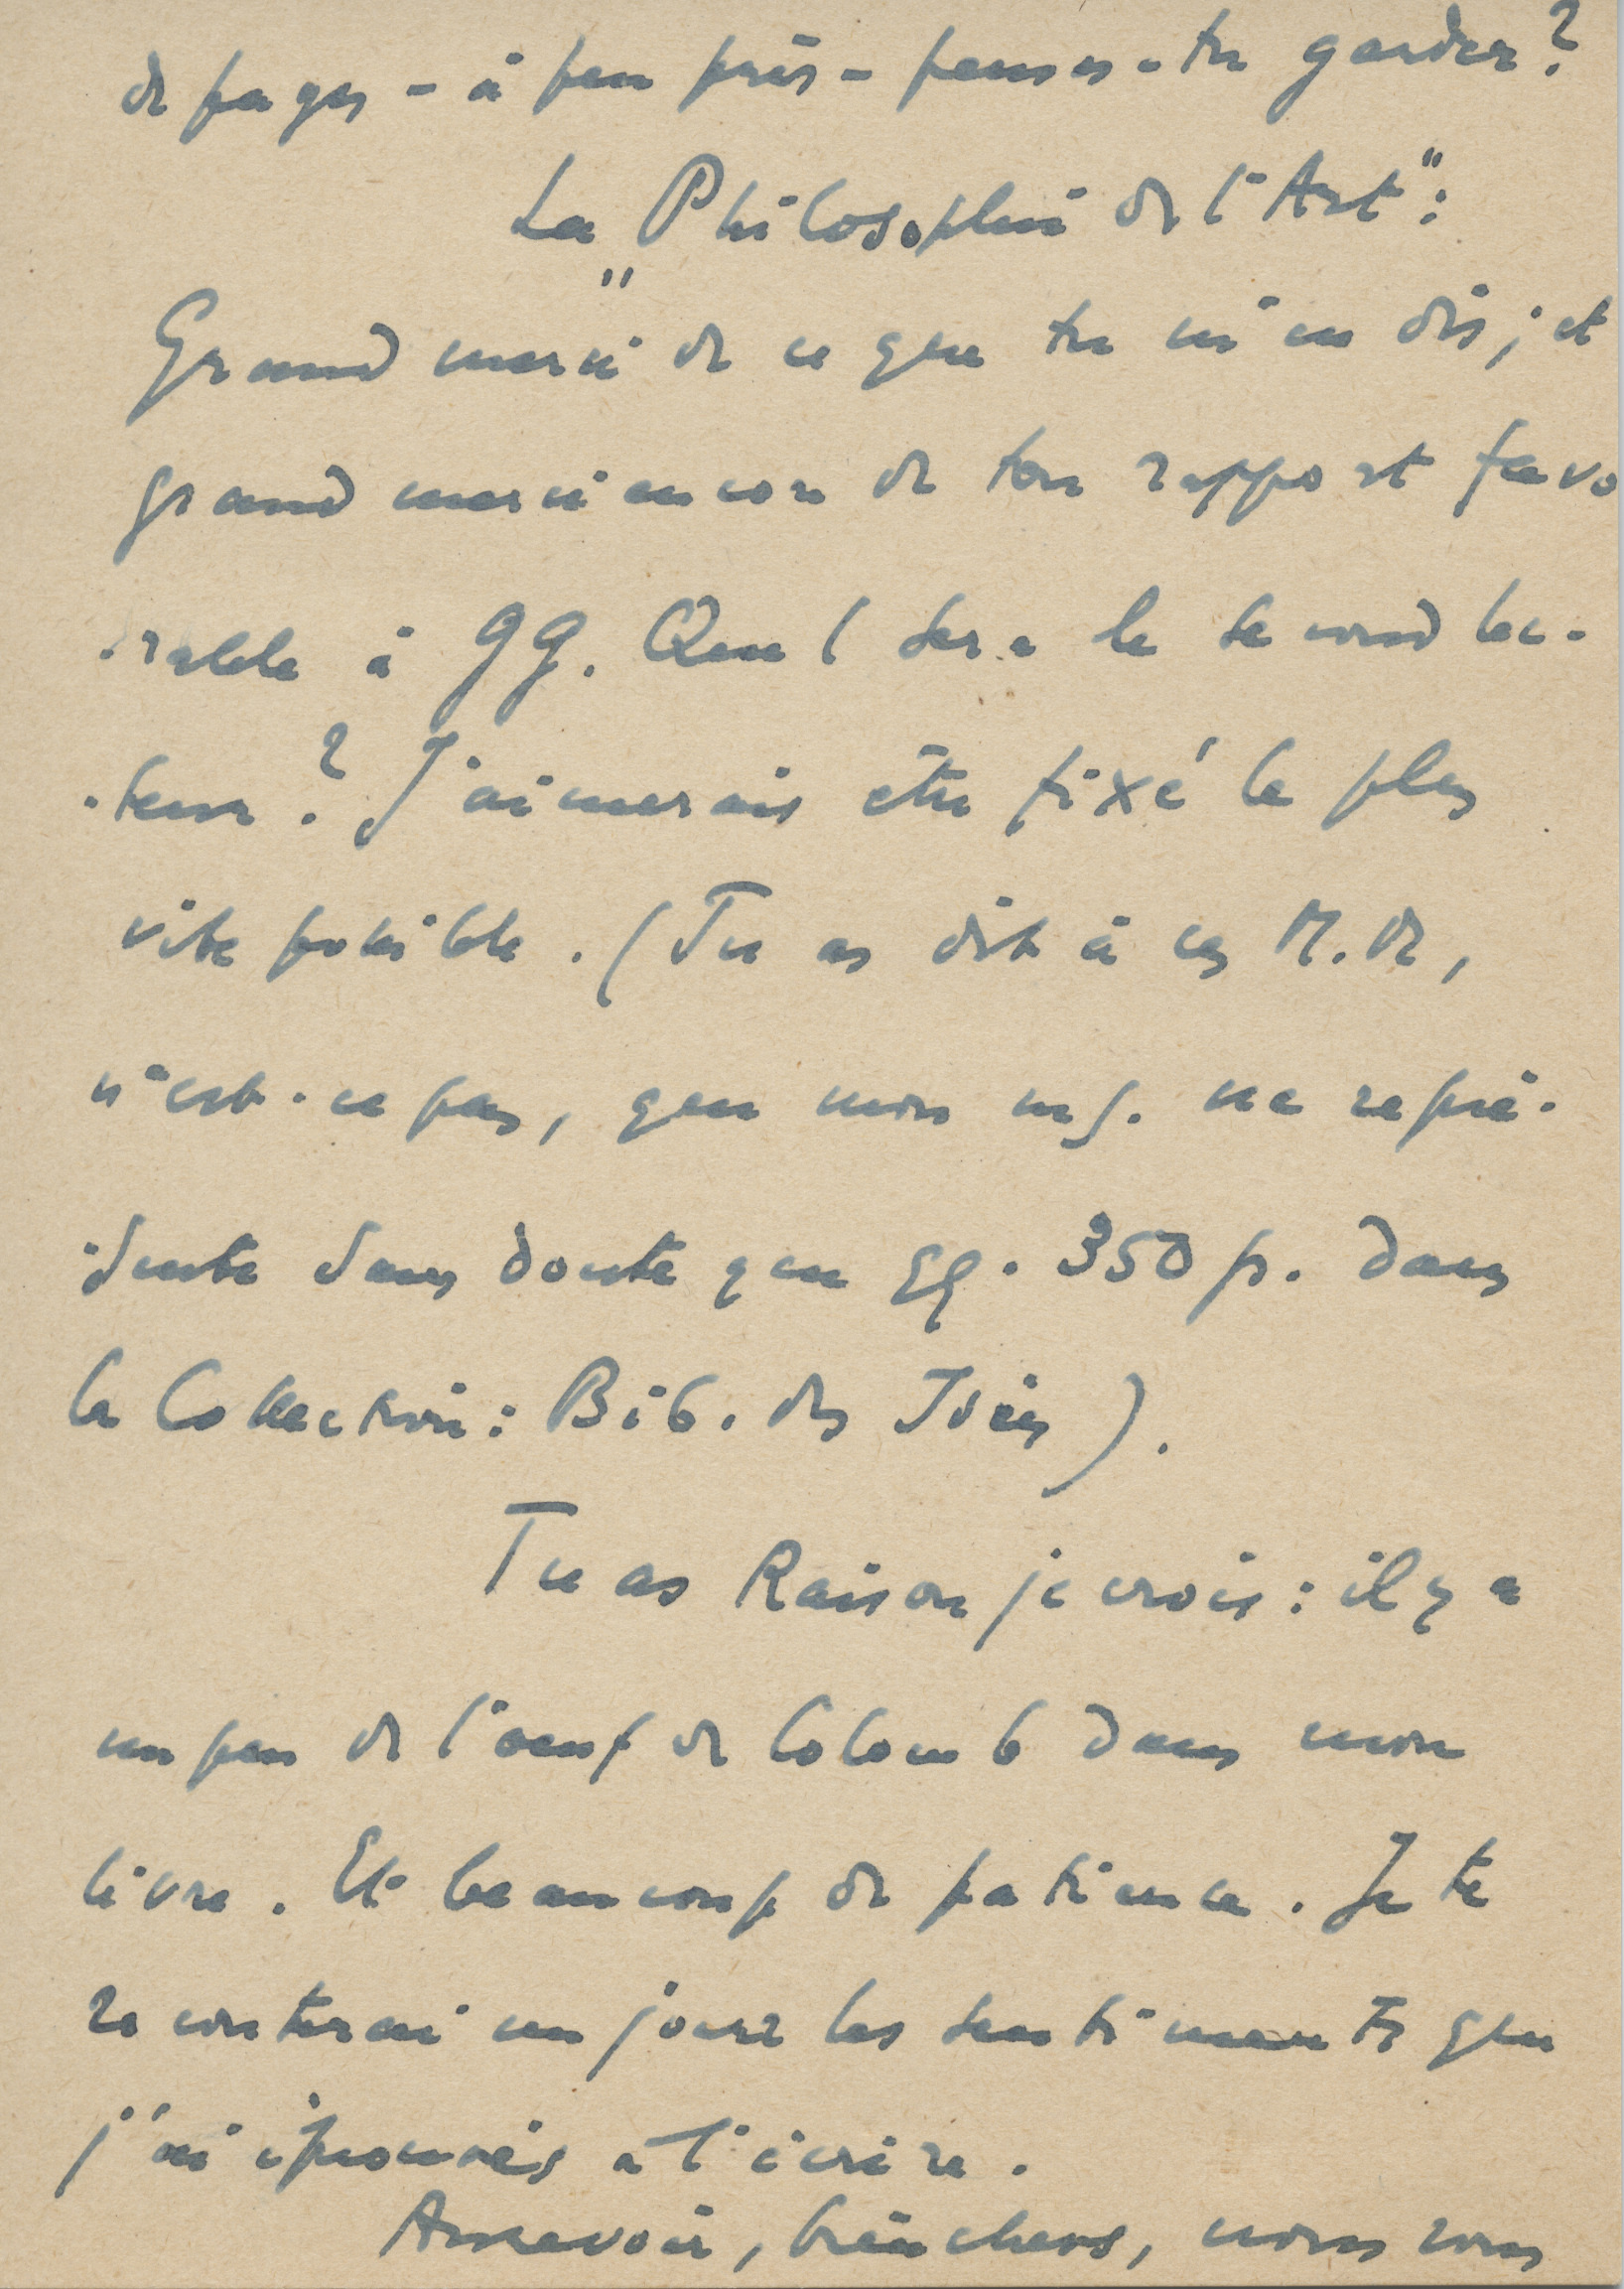 de pages - à peu près - penses-tu garder?
La "Philosophie de l'Art":
Grand merci de ce que tu m'en dis; et
grand merci encore de ton rapport favo
-rable à GG. Quel sera le second lec-
-teur? J'aimerais être fixé le plus
vite possible. (Tu as dit à ces M. de,
n'est-ce pas, que mon ms. ne repré-
-sente sans doute que qq. 350 p. dans
la Collection: Bib. des Idées).
Tu as Raison je crois: il y a
un peu de l'oeuf de Colomb dans mon
livre. Et beaucoup de patience. Je te
raconterai un jour les sentiments que
j'ai éprouvés à l'écrire.
Aurevoir, bien chers, nous vous